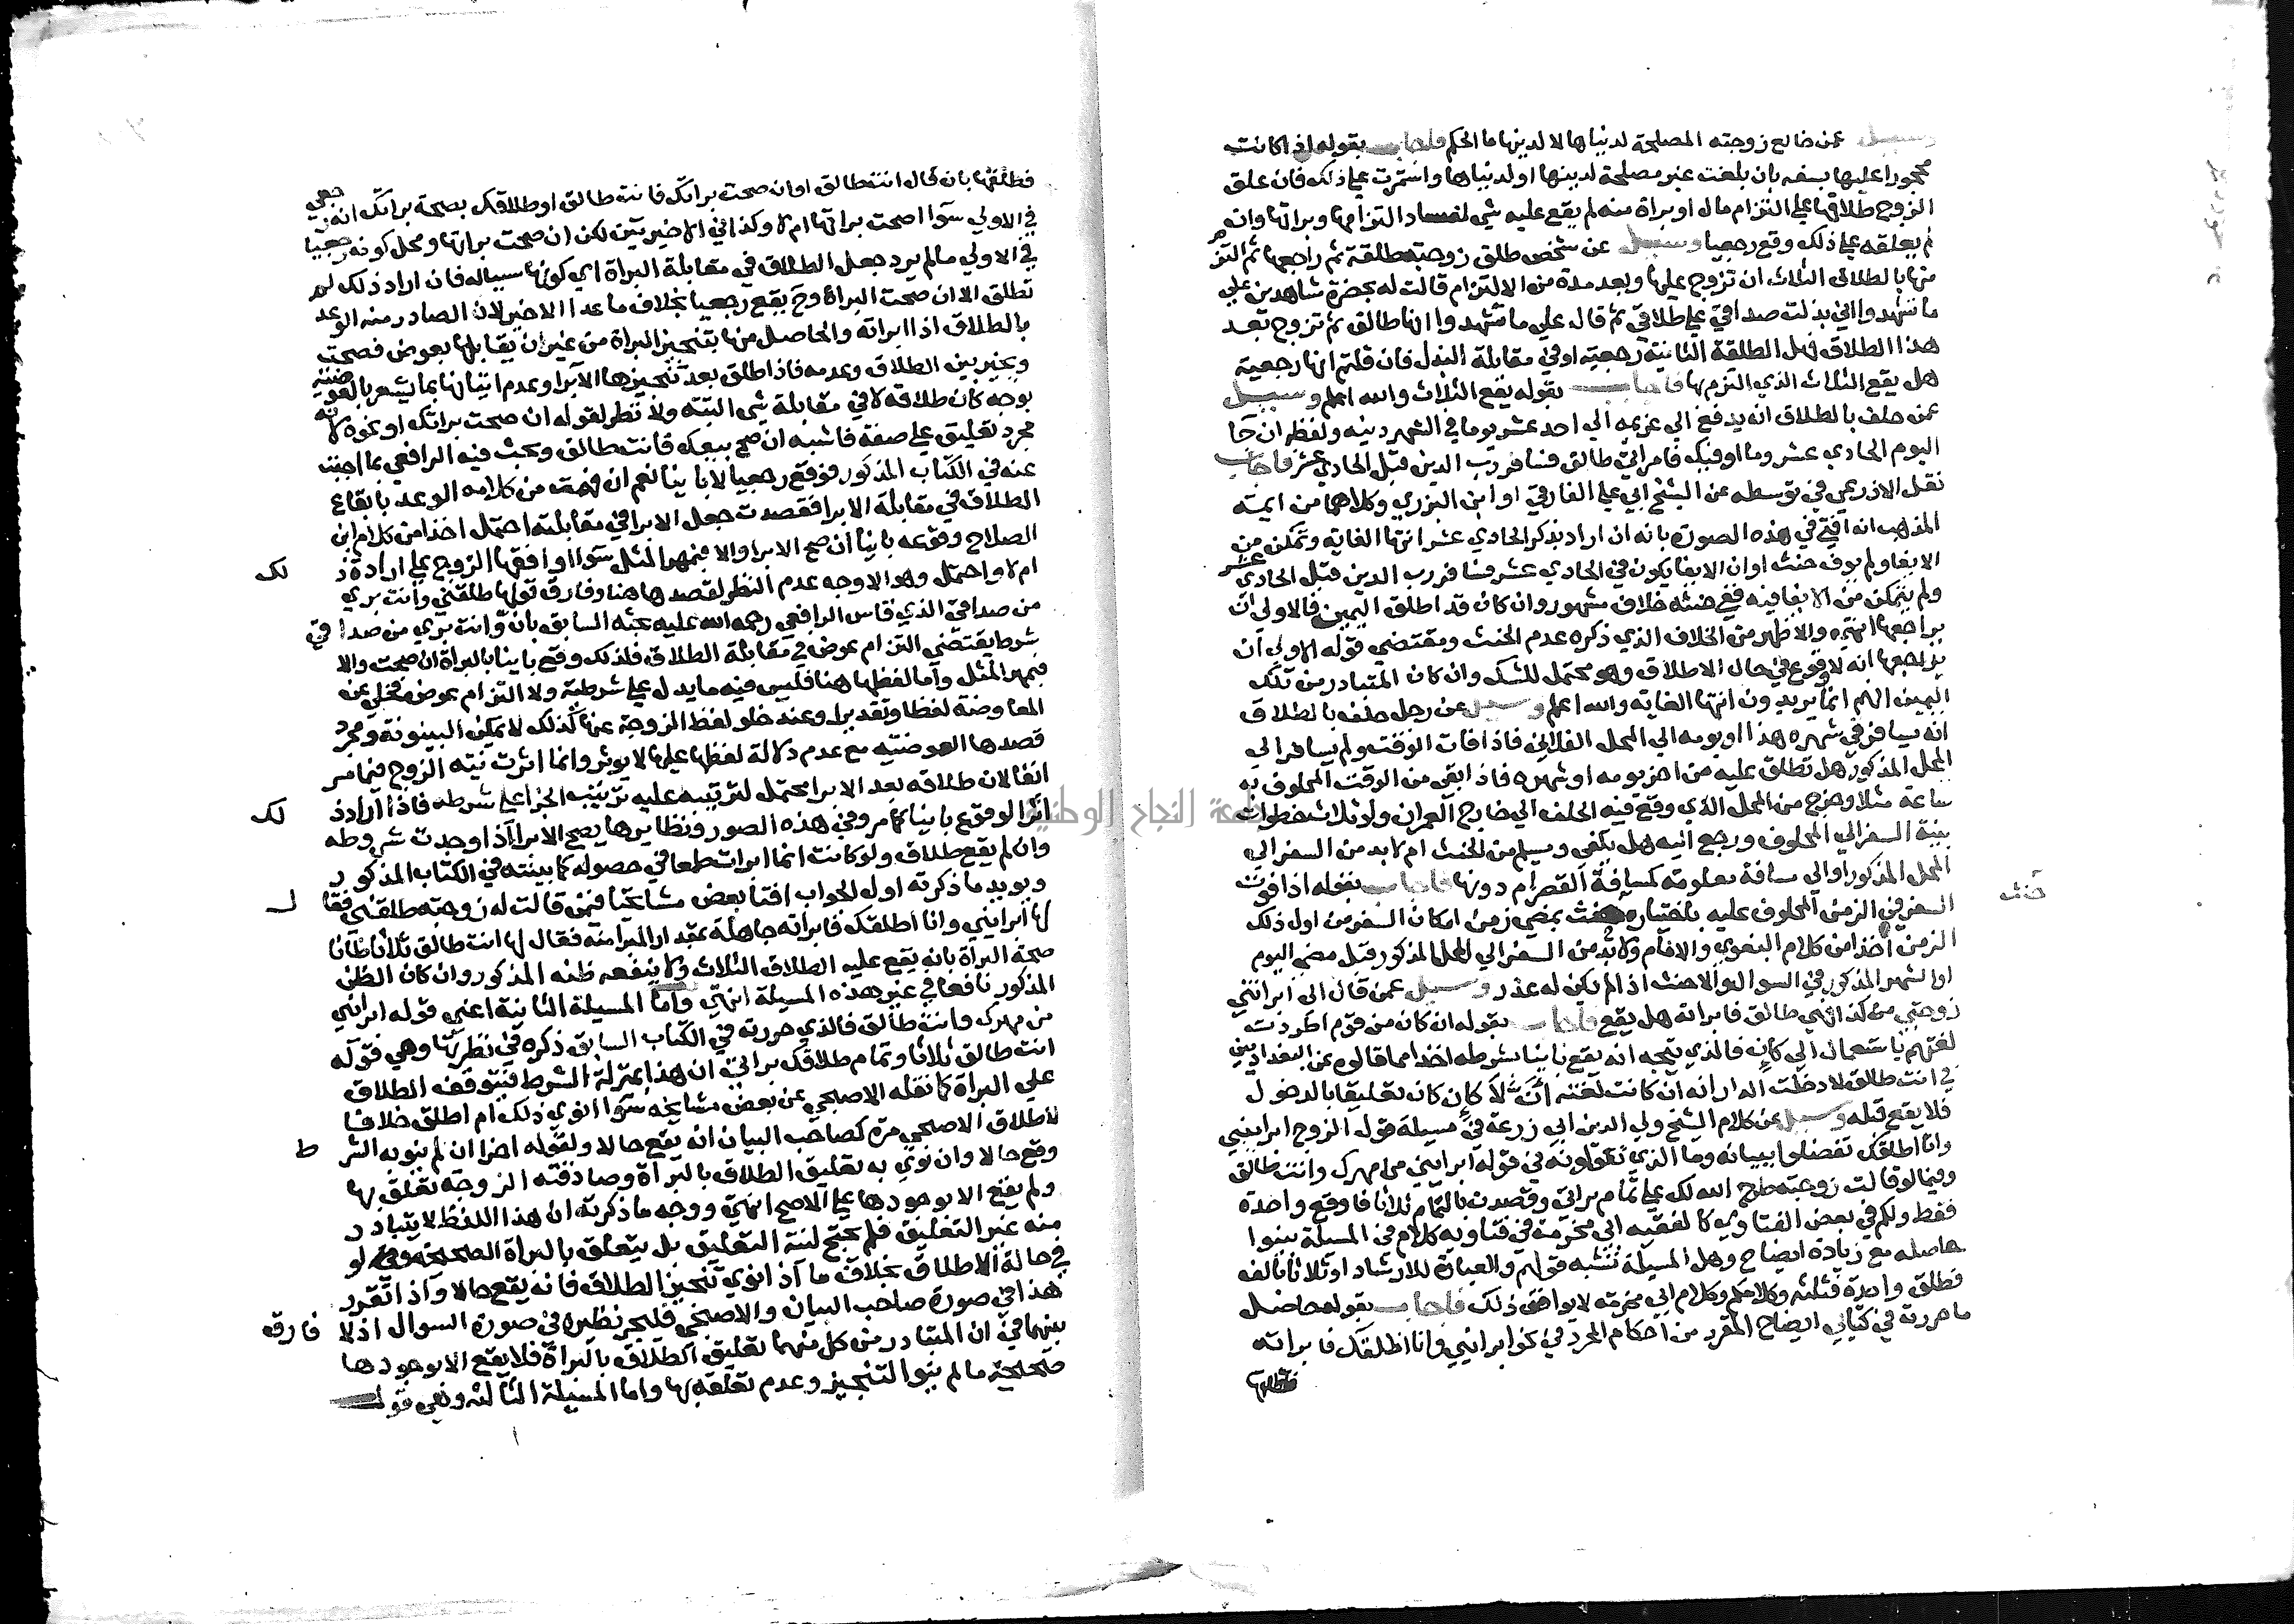 وسيل عمن خالع زوجته المصلحة لدنياها لا لدينها ما الحكم فاجاب بقوله اذا كانت
محجورا عليها بسفه بان بلغت غير مصلحة لدينها او لدنياها واستمرت على ذلك فان علق
الزوج طلاقها على التزام مال او براة منه لم يقع عليه شي لفساد التزامها وبراتها وان
لم يعلقه على ذلك وقع رجعيا وسيل عن شخص طلق زوجته طلقة ثم راجعها ثم التزم
منها بالطلاق الثلاث ان تزوج عليها وبعد مدة من الالتزام قالت له بحضرة شاهدين علي
ما تشهدوا اني بذلت صداقي على طلاقي ثم قال علي ما تشهدوا انها طالق ثم تزوج بعد
هذا الطلاق فهل الطلقة الثانية رجعية او في مقابلة البذل فان قلتم انها رجعية
هل يقع الثلاث الذي التزم بها فاجاب بقوله يقع الثلاث والله اعلم وسيل
عمن حلف بالطلاق انه يدفع الى غريمه الي احد عشر يوما في الشهر دينه ولفظه ان جا
اليوم الحادي عشر وما اوفيتك فامراتي طالق فسافر رب الدين قبل الحادي عشر فاجاب
نقل الاذرعي في توسطه عن الشيخ ابي علي الفارقي او ابن البزري وكلاهما من ايمة
المذهب انه افتى في هذه الصورة بانه ان اراد بذكر الحادي عشر انتها الغاية وتمكن من
الايفا ولم يوف حنث او ان الايفا يكون في الحادي عشر فسافر رب الدين قبل الحادي عشر
ولم يتمكن من الايفا فيه ففي حنثه خلاف مشهور وان كان قد اطلق اليمين فالاولى ان
يراجعها انتهى والاظهر من الخلاف الذي ذكره عدم الحنث ومقتضى قوله الاولى ان
يراجعها انه لا وقوع في حال الاطلاق وهو محتمل للشك وان كان المتبادر من تلك
اليمين انهم انما يريدون انتها الغاية والله اعلم وسيل عن رجل حلف بالطلاق
انه يسافر في شهره هذا او يومه الي المحل الفلاني فاذا فات الوقت ولم يسافر الي
المحل المذكور هل تطلق عليه من اخر يومه او شهره فاذا بقي من الوقت المحلوف به
ساعة مثلا وخرج من المحل الذي وقع فيه الحلف الي خارج العمران ولو ثلاث خطوات
بنية السفر الي المحلوف ورجع اليه هل يكفي ويسلم من الحنث ام لا بد من السفر الي
المحل المذكور او الي مسافة معلومة كمسافة القصر ام دونها فاجاب بقوله اذا فوت
السفر في الزمن المحلوف عليه باختياره حنث بمضي زمن امكان السفر من اول ذلك
حنث
الزمن اخذا من كلام البغوي والامام ولا بد من السفر الي المحل المذكور قبل مضي اليوم
او الشهر المذكور في السوال والا حنث اذ لم يكن له عذر وسيل عمن قال الى ابراتني
زوجتي من كذا فهي طالق فابراته هل يقع فاجاب بقوله ان كان من قوم اطردت
لغتهم باستعمال الى كان فالذي يتجه انه يقع باينا بشرطه اخذا مما قالوه عن البغداديين
في انت طالق لا دخلت الدار انه ان كانت لغته ان لا كان كان تعليقا بالدخول
فلا يقع قبله وسيل عن كلام الشيخ ولي الدين ابي زرعة في مسيلة قول الزوج ابراييني
وانا اطلقك تفضلوا ببيانه وما الذي تقولونه في قوله ابراييني من مهرك وانت طالق
وفيما لو قالت زوجته طرح الله لك علي تمام براتي وقصدت بالتمام ثلاثا فاوقع واحدة
فقط ولكم في بعض الفتاوي كالفقيه ابي مخرمة في فتاويه كلام في المسيلة بينوا
حاصله مع زيادة ايضاح وهل المسيلة تشبه قولهم والعبارة للارشاد او ثلاثا بالف
فطلق واحدة فثلثه وكلامكم وكلام ابي مخرمة لا يوافق ذلك فاجاب بقوله حاصل
ما حررته في كتابي ايضاح المقرر من احكام المحرر في نحو ابراييني وانا اطلقك فابراته
فطلقها
فطلقها بان قال انت طالق او ان صحت براتك فانت طالق او طلاقك بصحة براتك انه رجعي
في الاولى سوا اصحت براتها ام لا وكذا في الاخيرتين لكن ان صحت براتها ومحل كونه رجعيا
في الاولى ما لم يرد جعل الطلاق في مقابلة البراة اي كونها سببا له فان اراد ذلك لم
تطلق الا ان صحت البراة وح يقع رجعيا بخلاف ما عدا الاخير لان الصادر منه الوعد
بالطلاق اذا ابراته والحاصل منها تنجيز البراة من غير ان يقابلها بعوض فصحت
ويخير بين الطلاق وعدمه فاذا طلق بعد تنجيزها الابرا وعدم اتيانها بما يشعر بالعوضية
بوجه كان طلاقه لا في مقابلة شي البتة ولا نظر لقوله ان صحت براتك او نحوه لانه
مجرد تعليق على صفة فاشبه ان صح بيعك فانت طالق وبحث فيه الرافعي بما اجبت
عنه في الكتاب المذكور فوقع رجعيا لا باينا نعم ان فهمت من كلامه الوعد بايقاع
الطلاق في مقابلة الابرا فقصدت جعل الابرا في مقابلته احتمل اخذا من كلام ابن
الصلاح وقوعه باينا ان صح الابرا والا فبمهر المثل سوا وافقها الزوج على ارادة ذ لك
ام لا واحتمل وهو الاوجه عدم النظر لقصدها هنا وفارق قولها طلقني وانت بري
من صداقي الذي قاس الرافعي رحمه الله عليه بحثه السابق بان وانت بري من صداقي
شرط يقتضي التزام عوض في مقابلة الطلاق فلذلك وقع باينا بالبراة ان صحت والا
فبمهر المثل واما لفظها هنا فليس فيه ما يدل على شرطية ولا التزام بعوض فخلي عن
المعاوضة لفظا وتقديرا وعند خلو لفظ الزوجة عنها كذلك لا تمكن البينونة ومجرد
قصدها العوضية مع عدم دلالة لفظها عليها لا يوثر وانما اثرت نية الزوج فيما مر
انفا لان طلاقه بعد الابرا محتمل لترتيبه عليه ترتيب الجزا على شرطه فاذا اراد ذ لك
اثر الوقوع باينا كما مر وفي هذه الصور ونظايرها يصح الابرا اذا وجدت شروطه
وان لم يقع طلاق ولو كانت انما ابرات طمعا في حصوله كما بينته في الكتاب المذكور
ويويد ما ذكرته اول الجواب افتا بعض مشايخنا فيمن قالت له زوجته طلقني فقا ل
لها ابراييني وانا اطلقك فابراته جاهلة بمقدار المبرا منه فقال لها انت طالق ثلاثا ظانا
صحة البراة بانه يقع عليه الطلاق الثلاث ولا ينفعه ظنه المذكور وان كان الظن
المذكور نافعا في غير هذه المسيلة انتهى واما المسيلة الثانية اعني قوله ابراييني
من مهرك وانت طالق فالذي حررته في الكتاب السابق ذكره في نظيرتها وهي قوله
انت طالق ثلاثا وتمام طلاقك براتي ان هذا بمنزلة الشرط فيتوقف الطلاق
على البراة كما نقله الاصبحي عن بعض مشايخه سوا انوى ذلك ام اطلق خلافا
لاطلاق الاصبحي مرة كصاحب البيان انه يقع حالا ولقوله اخرا ان لم ينو به الشر ط
وقع حالا وان نوى به تعليق الطلاق بالبراة وصادقته الزوجة تعلق بها
ولم يقع الا بوجودها على الاصح انتهى ووجه ما ذكرته ان هذا اللفظ لا يتبادر
منه غير التعليق فلم يحتج لنية التعليق بل يتعلق بالبراة الصحيحة ولو
في حالة الاطلاق بخلاف ما اذا نوى تنجيز الطلاق فانه يقع حالا واذا تقرر
هذا في صورة صاحب البيان والاصبحي فليجر نظيره في صورة السوال اذ لا فارق
بينهما في ان المتبادر من كل منهما تعليق الطلاق بالبراة فلا يقع الا بوجودها
صحيحة ما لم ينو التنجيز وعدم تعلقه بها واما المسيلة الثالثة وهي قول
جامعة النجاح الوطنية